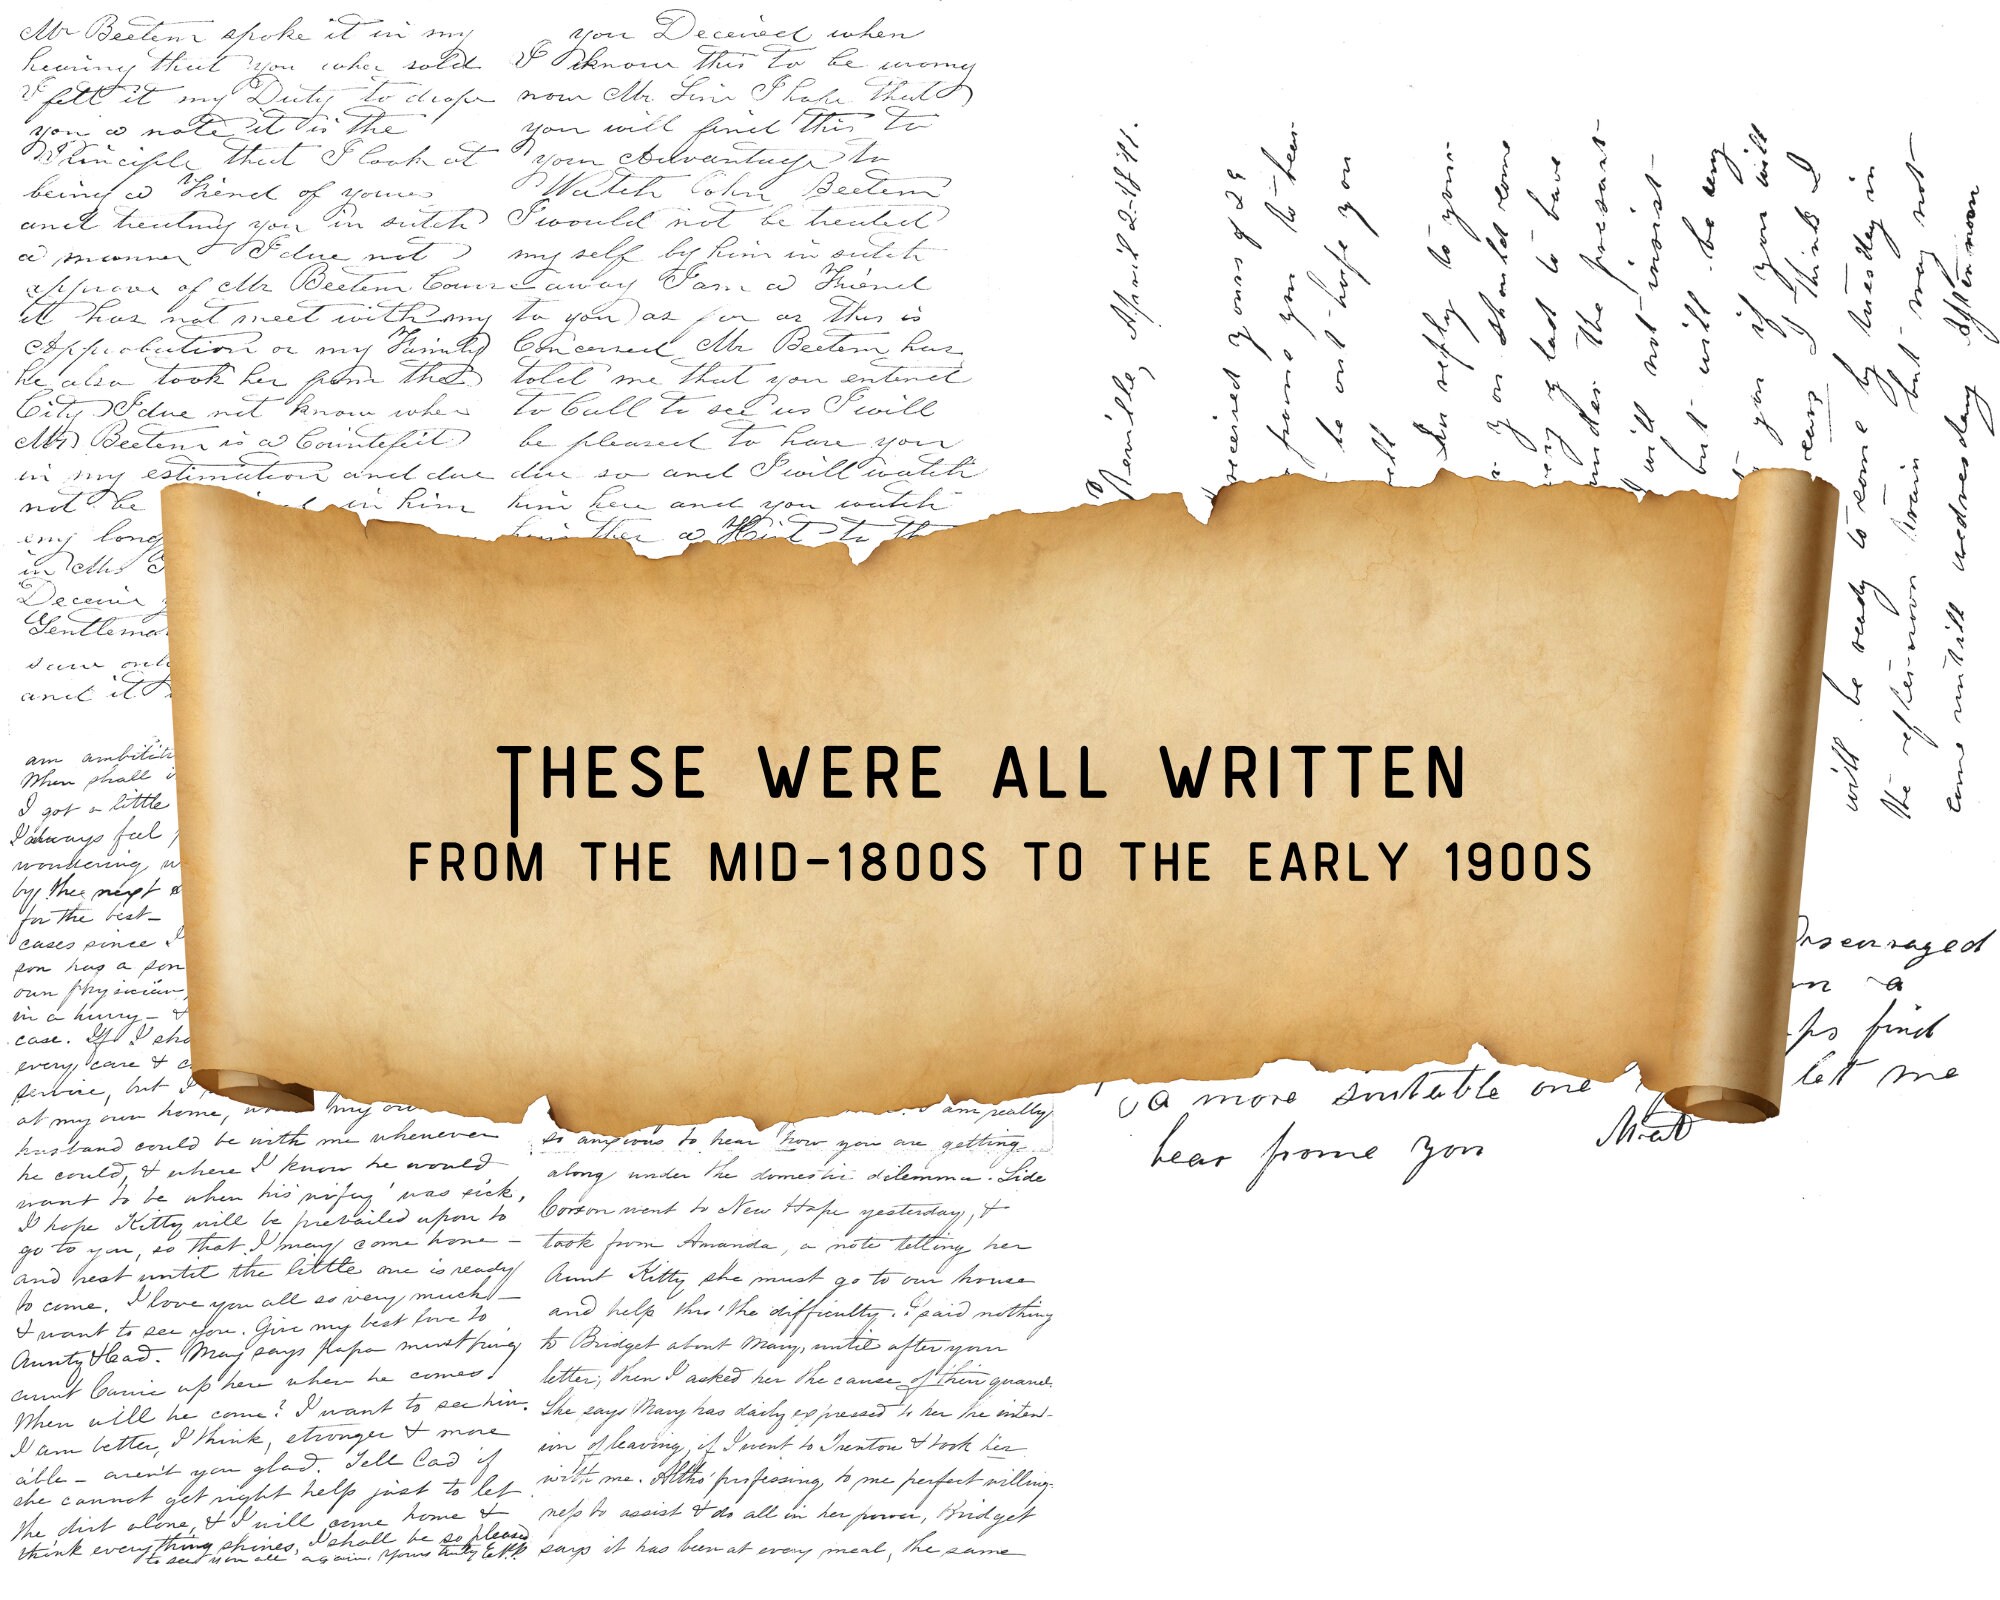 Mr Beetem spoke it in my
hearing that you wher sold
I felt it my Duty to drope
you a note it is the
Principle that I look at
being a Friend of youres
and treating you in sutch
a manner I due not
approve of Mr Beetem Cource
it has not meet with my
Approbution or my Family
he also took her from the
City I due not know wher
Mrs Beetem is a Countefeit
in my estimation and due
not be in him
eny long
in Mrs
Deceive
Gentleman
I am only
and it
you Deceived when
I know this to be wrong
now Mr Sim I hope that
you will find this to
your Advantage to
Watch John Beetem
I would not be treated
my self by him in sutch
a away I am a Friend
to you as far as this is
Concerned Mr Beetem has
told me that you entend
to Call to see us I will
be pleased to have you
due so and I will watch
him here and you watch
him ther a Hint to the
April 2-1891.
received yours of 29
frome you to hear
be out hope you
In reply to your
you should come
very glad to have
under the presant
will not insist
but will be very
you if you will
I think I
will be ready to come by tuesday in
the afternoon train but may not
come untill wednesday afternoon
THESE WERE ALL WRITTEN
FROM THE MID-1800S TO THE EARLY 1900S
am ambitio
When shall i
I got a little
I always feel
wondering w
by the next
for the best-
cases since I
son has a son
own physician,
in a hurry - &
case. If I sho
every care & c
service, but I
at my own home, my ow
husband could be with me whenever
he could, & where I know he would
want to be when his wifey was sick,
I hope Kitty will be prevailed upon to
go to you, so that I may come home -
and rest until the little one is ready
to come. I love you all so very much -
& want to see you. Give my best love to
Aunty & Cad. May says papa must bring
aunt Carrie up here when he comes.
When will he come? I want to see him.
I am better, I think, stronger & more
able - aren't you glad. Tell Cad if
she cannot get right help just to let
the dirt alone, & I will come home &
think everything shines, I shall be so pleased
to see you all again. Yours truly
I am really
so anxious to hear how you are getting
along under the domestic dilemma. Side
Corson went to New Hope yesterday, &
took from Amanda, a note telling her
Aunt Kitty she must go to our house
and help thro' the difficulty. I said nothing
to Bridget about Mary, until after your
letter; then I asked her the cause of their quarrel.
She says Mary has daily expressed to her the inten-
ion of leaving, if I went to Trenton & took her
with me. Altho' professing, to me perfect willing-
ness to assist & do all in her power, Bridget
says it has been at every meal, the same
Discouraged
on a
ps find
a more suitable one let me
hear frome you